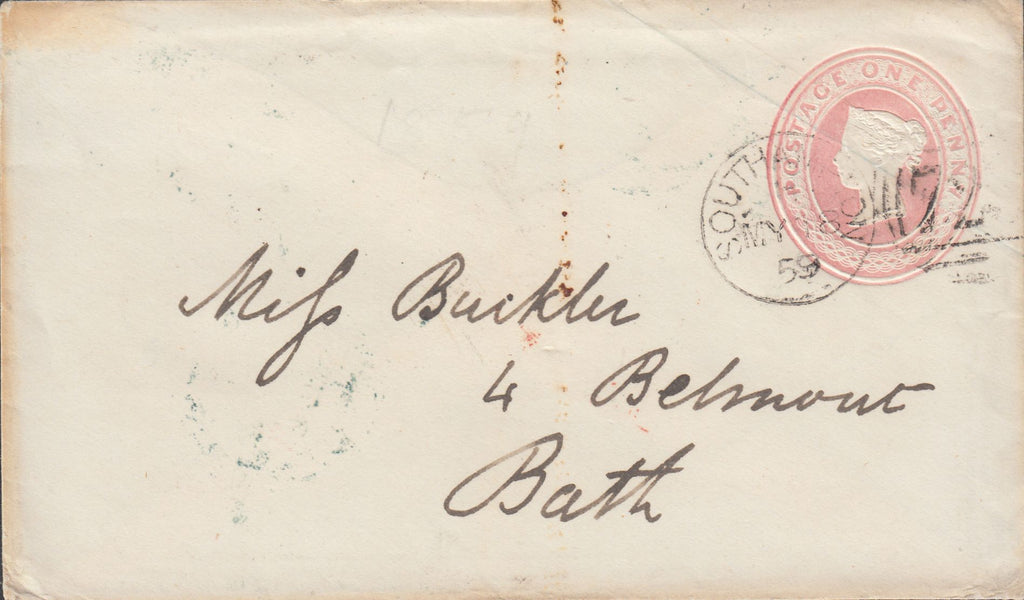 POSTAGE ONE PENNY
SOUTH
MY 18
59
Miss Buckler
4 Belmont
Bath